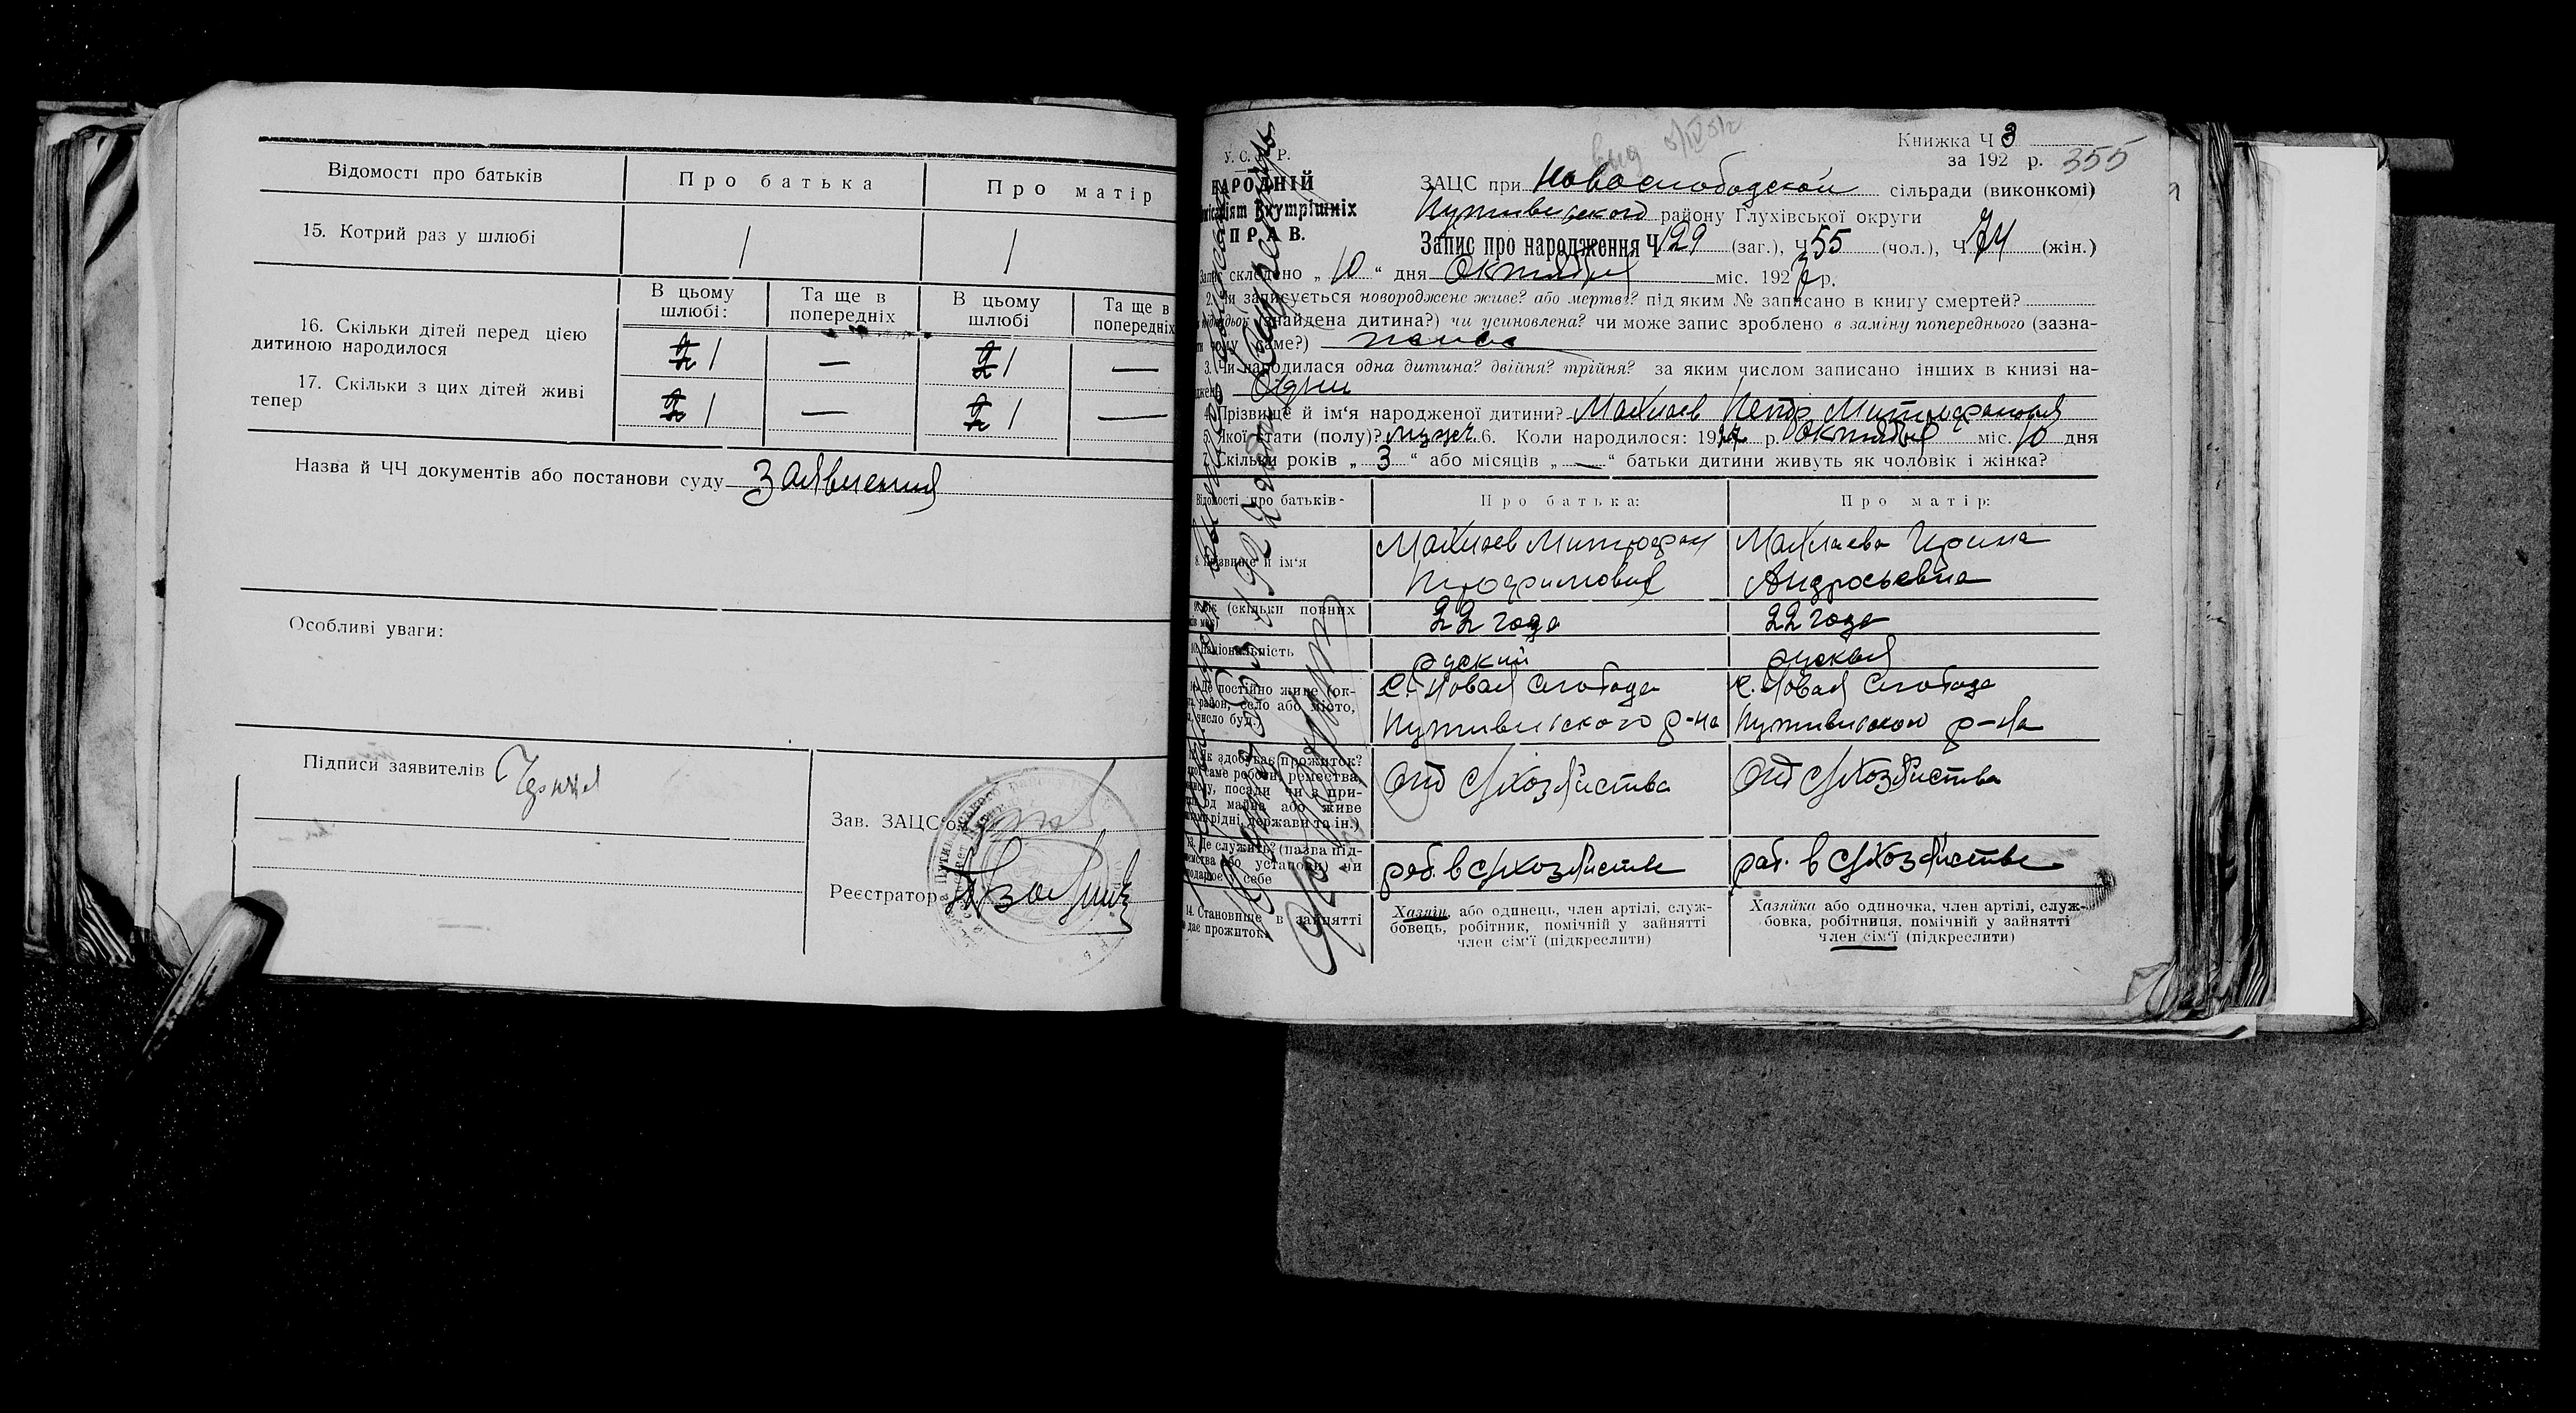 Відомості про батьків
Про батька
Про матір
15. Котрий раз у шлюбі
/
/
В цьому шлюбі:
Та ще в попередніх
В цьому шлюбі
Та ще в попередніх
16. Скільки дітей перед цією
дитиною народилося
2 1
—
2 1
—
17. Скільки з цих дітей живі
тепер
2 1
—
2 1
—
Назва й ЧЧ документів або постанови суду заявления
Особливі уваги:
Підписи заявителів
Зав. ЗАЦС'ом
Реєстратор
У. С. Р. Р.
НАРОДНІЙ
Внутрішніх
СПРАВ.
Книжка Ч 3
за 192 р. 355
ЗАЦС при Новослободской сільради (виконкомі)
Путивльского району Глухівської округи
Запис про народження Ч 129 (заг.), Ч 55 (чол.), Ч 74 (жін.)
Запис складено „ 10 “ дня Октября міс. 1927 р.
2. Чи записується новороджене живе? або мертве? під яким № записано в книгу смертей?
(знайдена дитина?) чи усиновлена? чи може запис зроблено в заміну попереднього (зазна-
чому саме?)
3. Чи народилася одна дитина? двійня? трійня? за яким числом записано інших в книзі на-
Один
4. Прізвище й ім'я народженої дитини? Махлаев Петр Митрофанович
5. Якої стати (полу)? мужч. 6. Коли народилося: 1927 р. Октября міс. 10 дня
7. Скільки років „ 3 “ або місяців „ — “ батьки дитини живуть як чоловік і жінка?
Відомості про батьків
Про батька:
Про матір:
8. Прізвище й ім'я
Махлаев Митрофан
Махлаева Ирина
Андреевна
9. Вік (скільки повних
22 года
22 года
10. Національність
руский
руская
11. Де постійно живе (ок-
район, село або місто,
число буд.)
с. Новая Слобода
Путивльского р-на
с. Новая Слобода
Путивльского р-на
12. Як здобуває прожиток?
саме роботи, ремества,
посади чи з при-
од майна або живе
рідні, держави та ін.)
От с/хозяйства
От с/хозяйства
13. Де служить? (назва під-
або установи) чи
себе
раб. в с/хозяйстве
раб. в с/хозяйстве
14. Становище в зайнятті
дає прожиток
Хазяїн, або одинець, член артілі, служ-
бовець, робітник, помічній у зайнятті
член сім'ї (підкреслити)
Хазяйка або одиночка, член артілі, служ-
бовка, робітниця, помічній у зайнятті
член сім'ї (підкреслити)